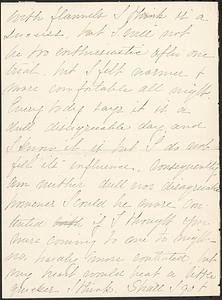 with flannels I think is a
success, but I will not
be too enthusiastic after one
trial. but I felt warmer &
more comfortable all night.
Every body says it is a
dull disagreeable day, and
I know it is but I do not
feel its influence. consequently
am neither dull nor disagreeable
however I could be more con-
tented if I thought you
were coming to me to night-
no, hardly more contented but
my heart would beat a little
quicker I think. Shall I get